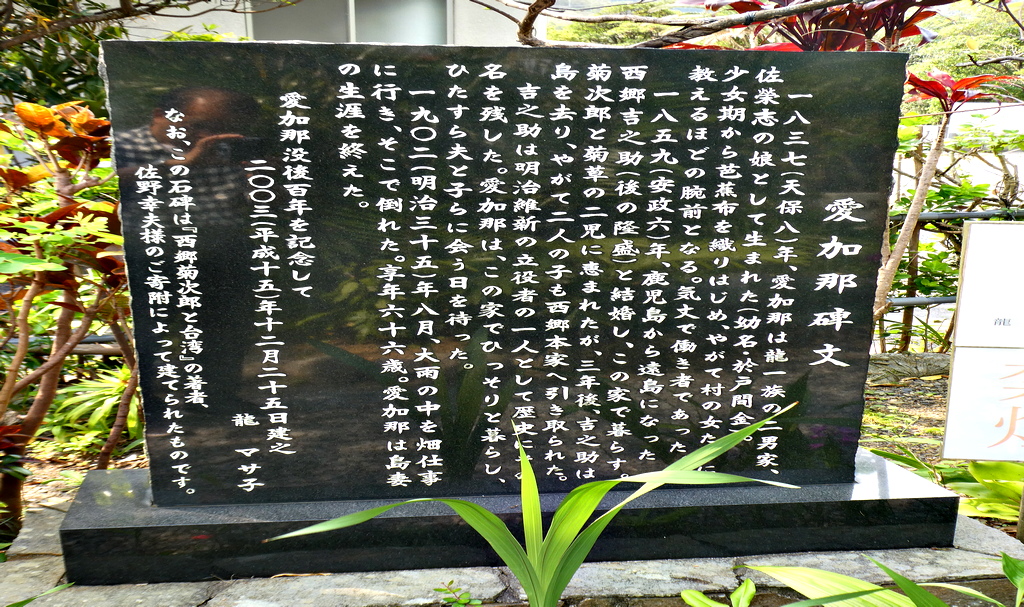 愛加那碑文
一八三七(天保八)年、愛加那は龍一族の二男家、
佐榮志の娘として生まれた(幼名・於戸間金)。
少女期から芭蕉布を織りはじめ、やがて村の女た に
教えるほどの腕前となる。気丈で働き者であった
一八五九(安政六)年、鹿児島から遠島になった
西郷吉之助(後の隆盛)と結婚し、この家で暮らす。
菊次郎と菊草の二児に恵まれたが、三年後、吉之助は
島を去り、やがて二人の子も西郷本家へ引き取られた。
吉之助は明治維新の立役者の一人として歴史に の
名を残した。愛加那は、この家でひっそりと暮らし、
ひたすら夫と子らに会う日を待った。
一九〇二(明治三十五)年八月、大雨の中を畑仕事
に行き、そこで倒れた。享年六十六歳。愛加那は島妻
の生涯を終えた。
愛加那没後百年を記念して
二〇〇三(平成十五)年十二月二十五日建之
龍 マサ子
なお、この石碑は『西郷菊次郎と台湾』の著者、
佐野幸夫様のご寄附によって建てられたものです。
龍